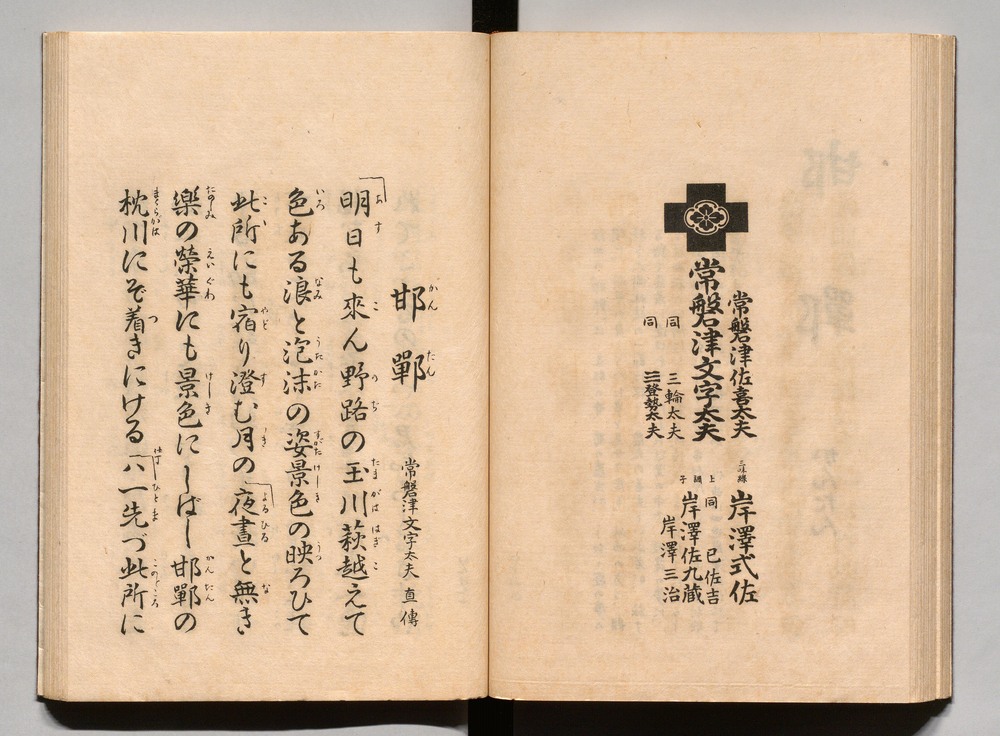 常磐津佐喜太夫
常磐津文字太夫
同 三輪太夫
同 三登勢太夫
三味線 岸澤式佐
同 巳佐吉
上調子 岸澤佐九蔵
岸澤三治
邯鄲
かんたん
常磐津文字太夫 直傳
明日も來ん野路の玉川萩越えて
色ある浪と泡沫の姿景色の映ろひて
此所にも宿り澄む月の「夜晝と無き
樂の榮華にも景色にしばし邯鄲の
枕川にぞ着きにける「ハー先づ此所に